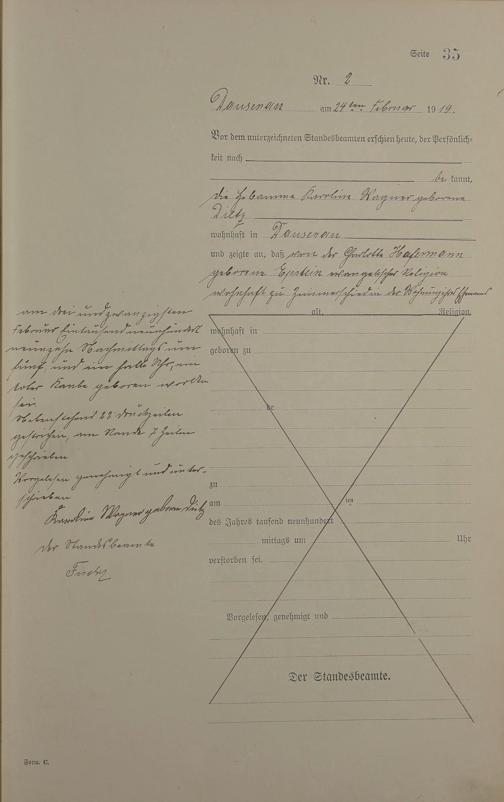 Seite 35
Nr. 2
Dausenau am 24ten Februar 1919.
Vor dem unterzeichneten Standesbeamten erschien heute, der Persönlich-
keit nach
be kannt,
die Hebamme Karoline Wagner geborene
Dietz
wohnhaft in Dausenau
und zeigte an, daß von der Charlotte Hafermann
geborene Epstein evangelischer Religion
wohnhaft zu Zimmerschied in der Ehemanns
alt, Religion,
wohnhaft in
geboren zu
de
zu
am um
des Jahres tausend neunhundert
mittags um Uhr
verstorben sei.
Vorgelesen, genehmigt und
Der Standesbeamte.
am drei und zwanzigsten
Februar Eintausend neunhundert
neunzehn Nachmittags um
fünf und ein halb Uhr, ein
toter Knabe geboren worden
sei.
Nebenstehend 22 Druckzeilen
gestrichen, am Rande 7 Zeilen
geschrieben
Vorgelesen genehmigt und unter-
schrieben
Karoline Wagner geboren Dietz
Der Standesbeamte
Form. C.